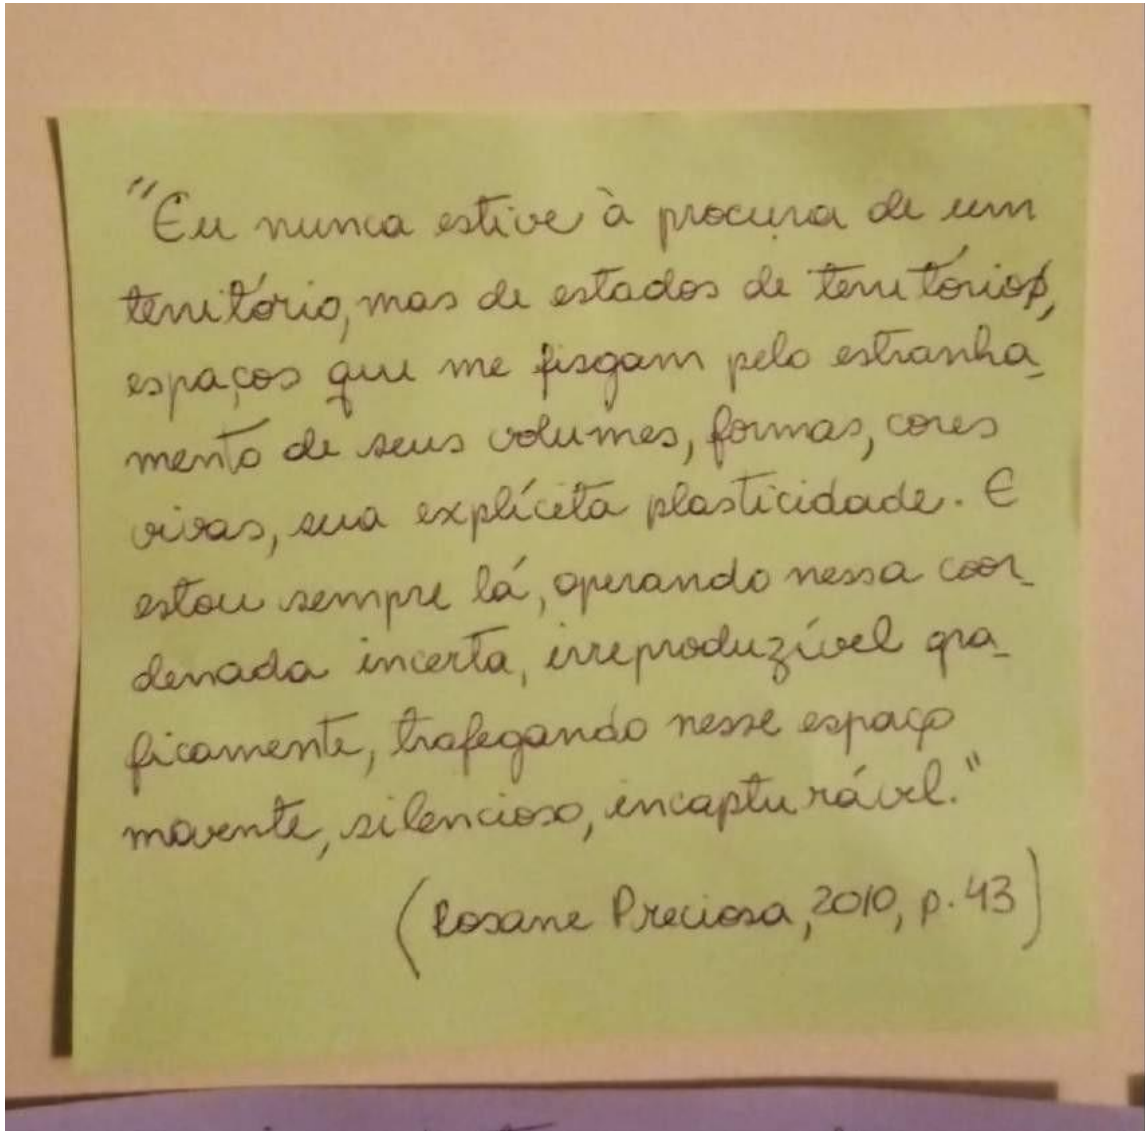 "Eu nunca estive à procura de um
território, mas de estados de território,
espaços que me fisgam pelo estranha-
mento de seus volumes, formas, cores
vivas, sua explícita plasticidade. E
estou sempre lá, operando nessa coor-
denada incerta, irreproduzível gra-
ficamente, trafegando nesse espaço
movente, silencioso, incapturável."
(Rosane Preciosa, 2010, p. 43)